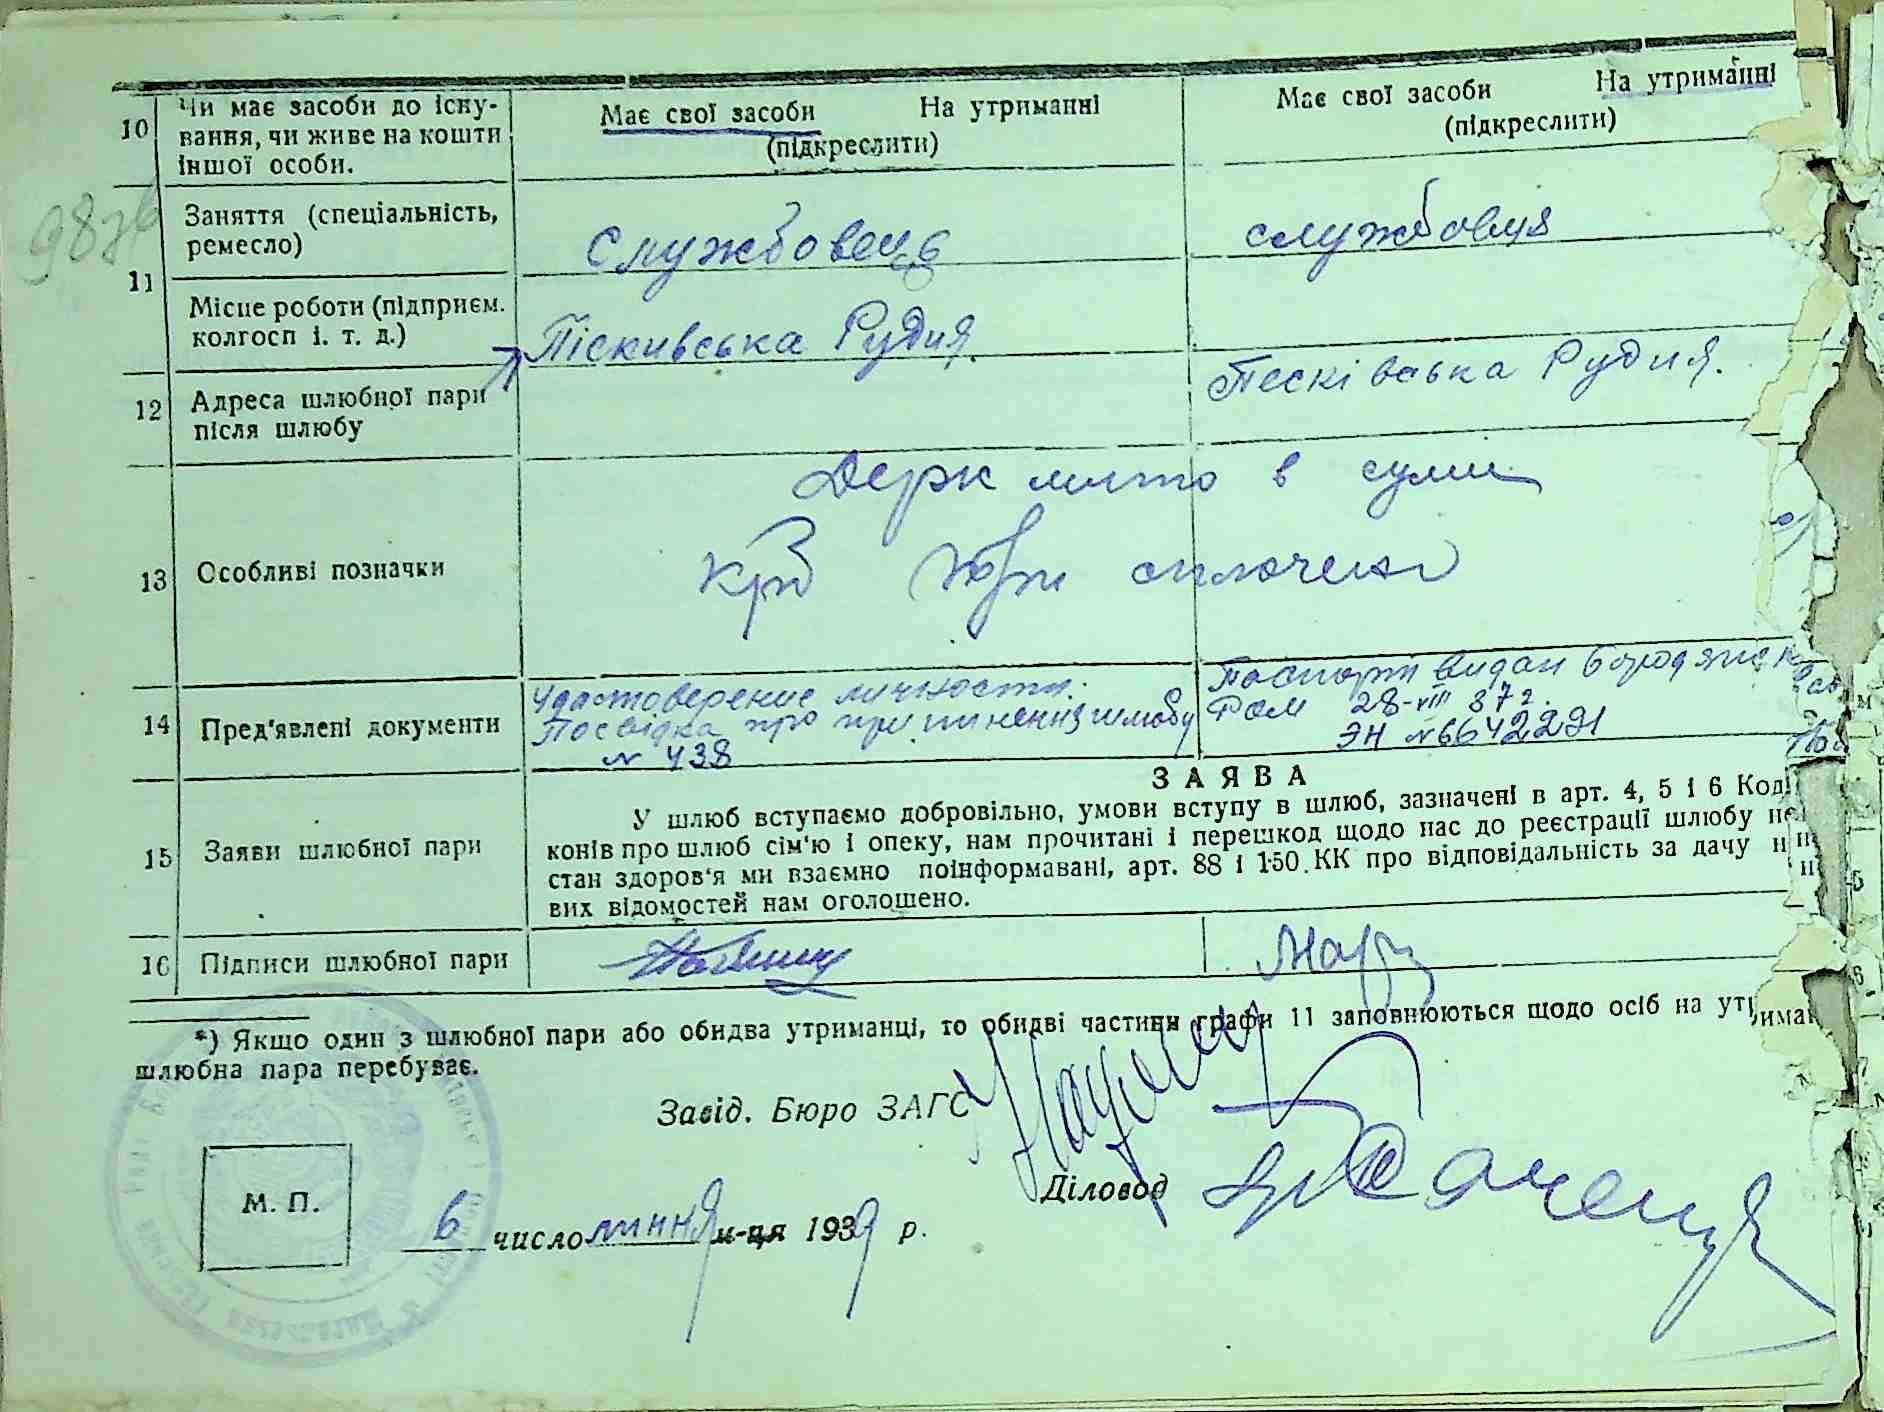 10 Чи має засоби до існу-
вання, чи живе на кошти
іншої особи.
Має свої засоби На утриманні
(підкреслити)
Має свої засоби На утриманні
(підкреслити)
11 Заняття (спеціальність,
ремесло)
Службовець
службовця
Місце роботи (підприєм.
колгосп і. т. д.)
Піскивська Рудня
12 Адреса шлюбної пари
після шлюбу
Песківська Рудня.
13 Особливі позначки
Держ мито в сумі
крб оплочено
14 Пред'явлені документи
Удостоверение личности.
Посвідка про припинення шлюбу
№ 438
Паспорт видан Бородянск
Рам 28-VIII 37 г.
ЭН №6642291
15 Заяви шлюбної пари
ЗАЯВА
У шлюб вступаємо добровільно, умови вступу в шлюб, зазначені в арт. 4, 5 і 6 Код
конів про шлюб сім'ю і опеку, нам прочитані і перешкод щодо нас до реєстрації шлюбу не
стан здоров'я ми взаємно поінформавані, арт. 88 і 150 КК про відповідальність за дачу н
вих відомостей нам оголошено.
16 Підписи шлюбної пари
*) Якщо один з шлюбної пари або обидва утриманці, то обидві частини графи 11 заповнюються щодо осіб на утриман
шлюбна пара перебуває.
Завід. Бюро ЗАГС
Діловод
М. П.
6 число липня м-ця 1939 р.